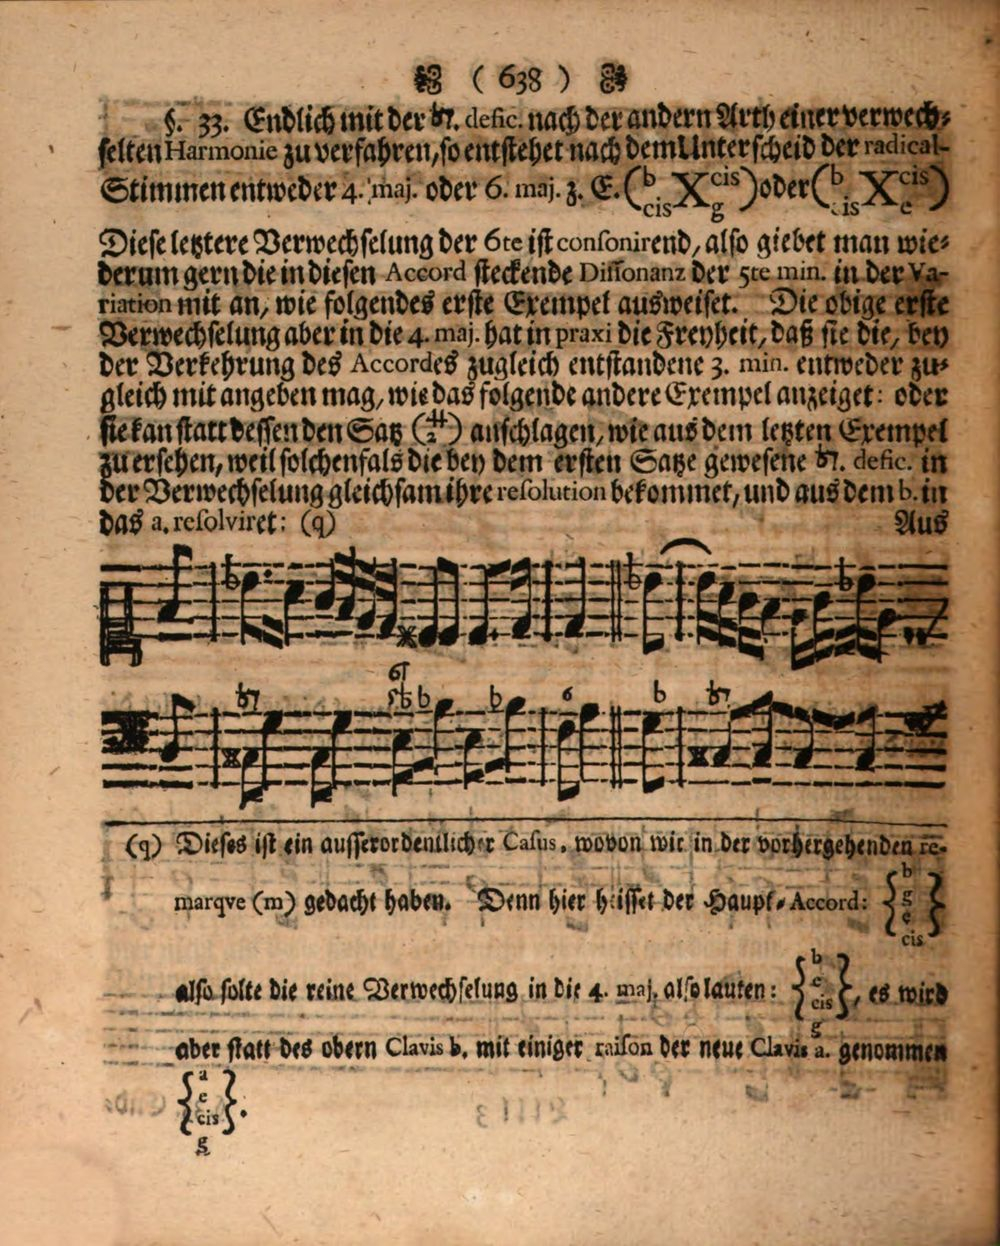 ( 638 )
§. 33. Endlich mit der b7. defic. nach der andern Arth einer verwech-
selten Harmonie zu verfahren, so entstehet nach dem Unterscheid der radical-
Stimmen entweder 4. maj. oder 6. maj. z. E. (b cis X cis g) oder (b cis X cis e)
Diese letztere Verwechselung der 6te ist consonirend, also giebet man wie-
derum gern die in diesen Accord steckende Dissonanz der 5te min. in der Va-
riation mit an, wie folgendes erste Exempel ausweiset. Die obige erste
Verwechselung aber in die 4. maj. hat in praxi die Freyheit, daß sie die, bey
der Verkehrung des Accordes zugleich entstandene 3. min. entweder zu-
gleich mit angeben mag, wie das folgende andere Exempel anzeiget: oder
sie kan statt dessen den Satz (4# 2) anschlagen, wie aus dem letzten Exempel
zu ersehen, weil solchenfals die bey dem ersten Satze gewesene b7. defic. in
der Verwechselung gleichsam ihre resolution bekommet, und aus dem b. in
das a. resolviret: (q)
Aus
6
b7 5b b b 6 b b7
(q) Dieses ist ein ausserordentlicher Casus, wovon wir in der vorhergehenden re-
marqve (m) gedacht haben. Denn hier heisset der Haupt-Accord: {b g e cis}
also solte die reine Verwechselung in die 4. maj. also lauten: {b e cis} g, es wird
aber statt des obern Clavis b. mit einiger raison der neue Clavis a. genommen
{a e cis}.
g